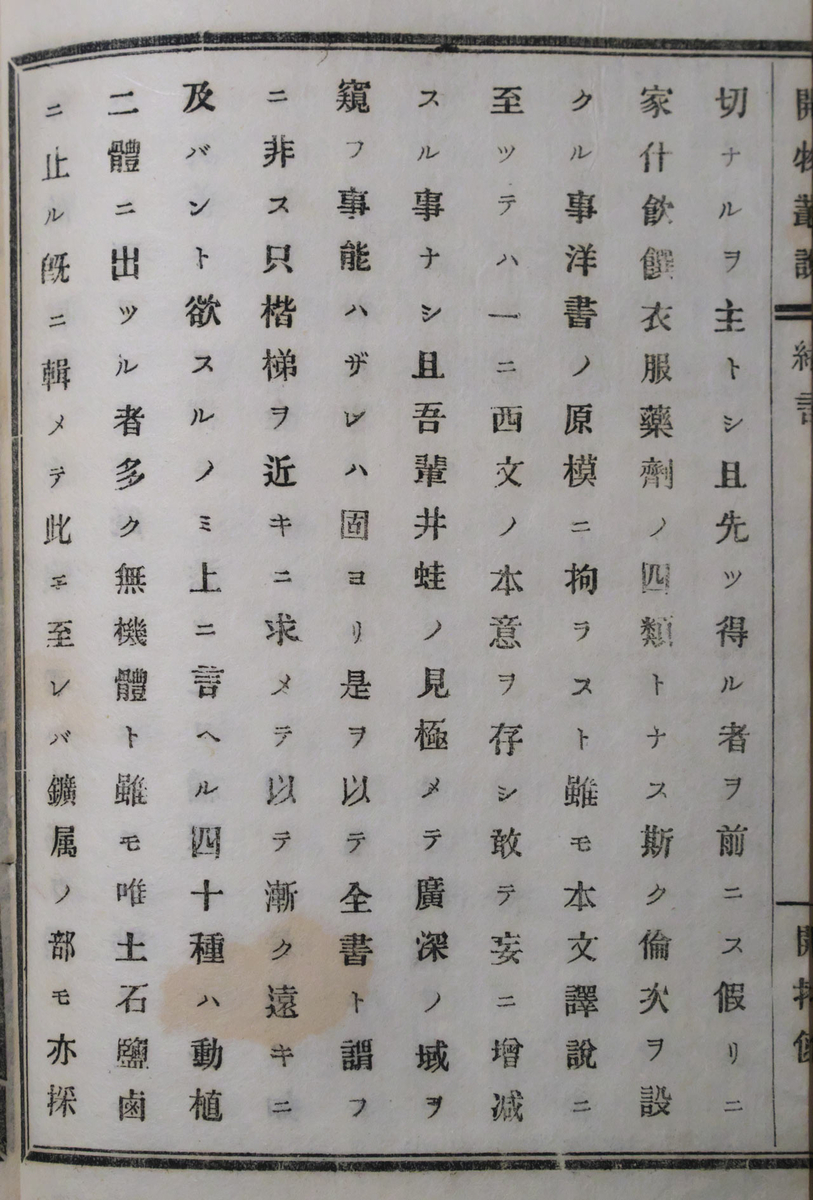 開物叢説
緒言
開拓使
切ナルヲ主トシ且先ツ得ル者ヲ前ニス假リニ
家什飲饌衣服藥劑ノ四類トナス斯ク倫次ヲ設
クル事洋書ノ原模ニ拘ラスト雖モ本文譯說ニ
至ツテハ一ニ西文ノ本意ヲ存シ敢テ妄ニ增减
スル事ナシ且吾輩井蛙ノ見極メテ廣深ノ域ヲ
窺フ事能ハザレハ固ヨリ是ヲ以テ全書ト謂フ
ニ非ス只楷梯ヲ近キニ求メテ以テ漸ク遠キニ
及バント欲スルノミ上ニ言ヘル四十種ハ動植
二體ニ出ツル者多ク無機體ト雖モ唯土石鹽鹵
ニ止ル旣ニ輯メテ此ヱ至レバ鑛属ノ部モ亦採